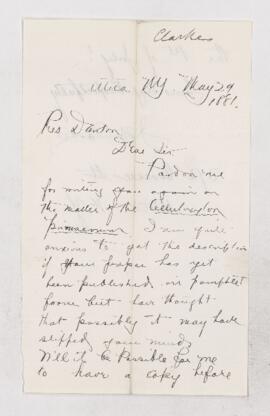 Clarkes
Utica NY May 29
1881.
Rev Dawson
Dear Sir
Pardon me
for writing you again on
the matter of the
I am quite
anxious to get the description
if your paper has yet
been published in pamphlet
form but have thought
that possibly it may have
slipped your mind
Will it be possible for me
to have a copy before